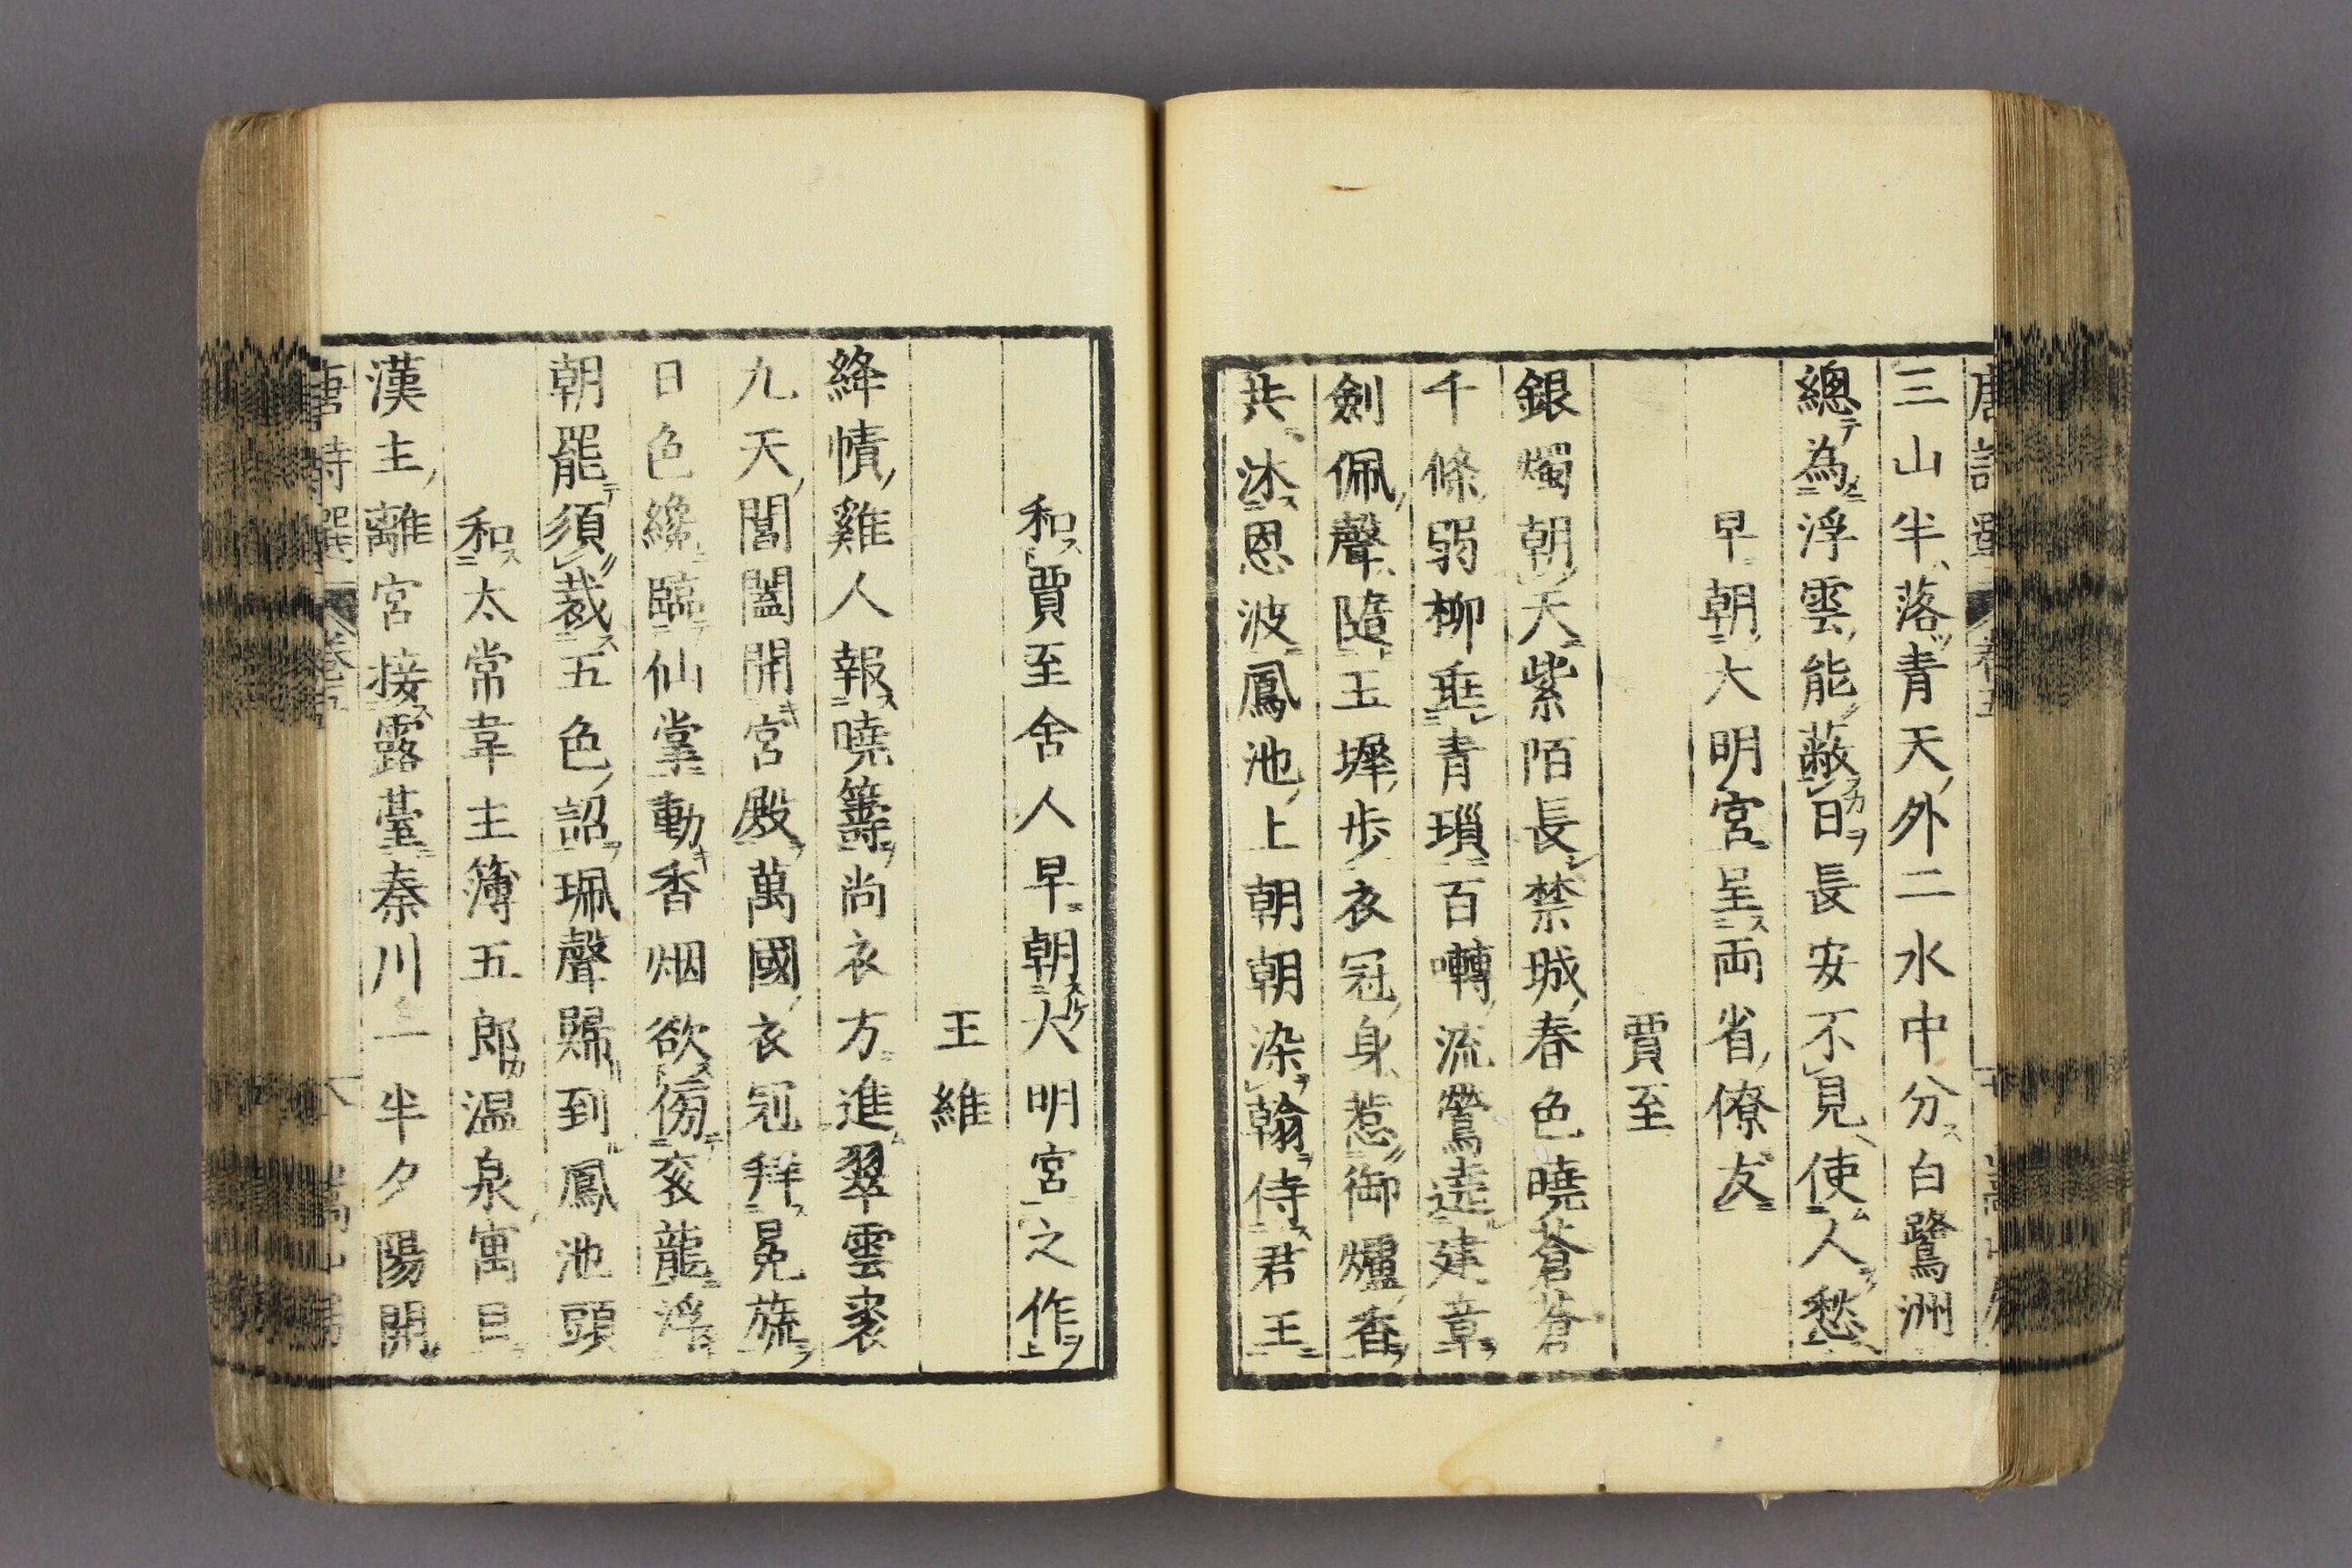 三山半落青天外二水中分白鷺洲
總為浮雲能蔽日長安不見使人愁
早朝大明宮呈両省僚友
賈至
銀燭朝天紫陌長禁城春色曉蒼蒼
千條弱柳垂青瑣百囀流鶯遶建章
劍佩聲隨玉墀步衣冠身惹御爐香
共沐恩波鳳池上朝朝染翰侍君王
和賈至舍人早朝大明宮之作
王維
絳幘雞人報曉籌尚衣方進翠雲裘
九天閶闔開宮殿萬國衣冠拜冕旒
日色纔臨仙掌動香烟欲傍袞龍浮
朝罷須裁五色詔珮聲歸到鳳池頭
和太常韋主簿五郎温泉寓目
漢主離宮接露臺秦川一半夕陽開
唐詩選 卷五